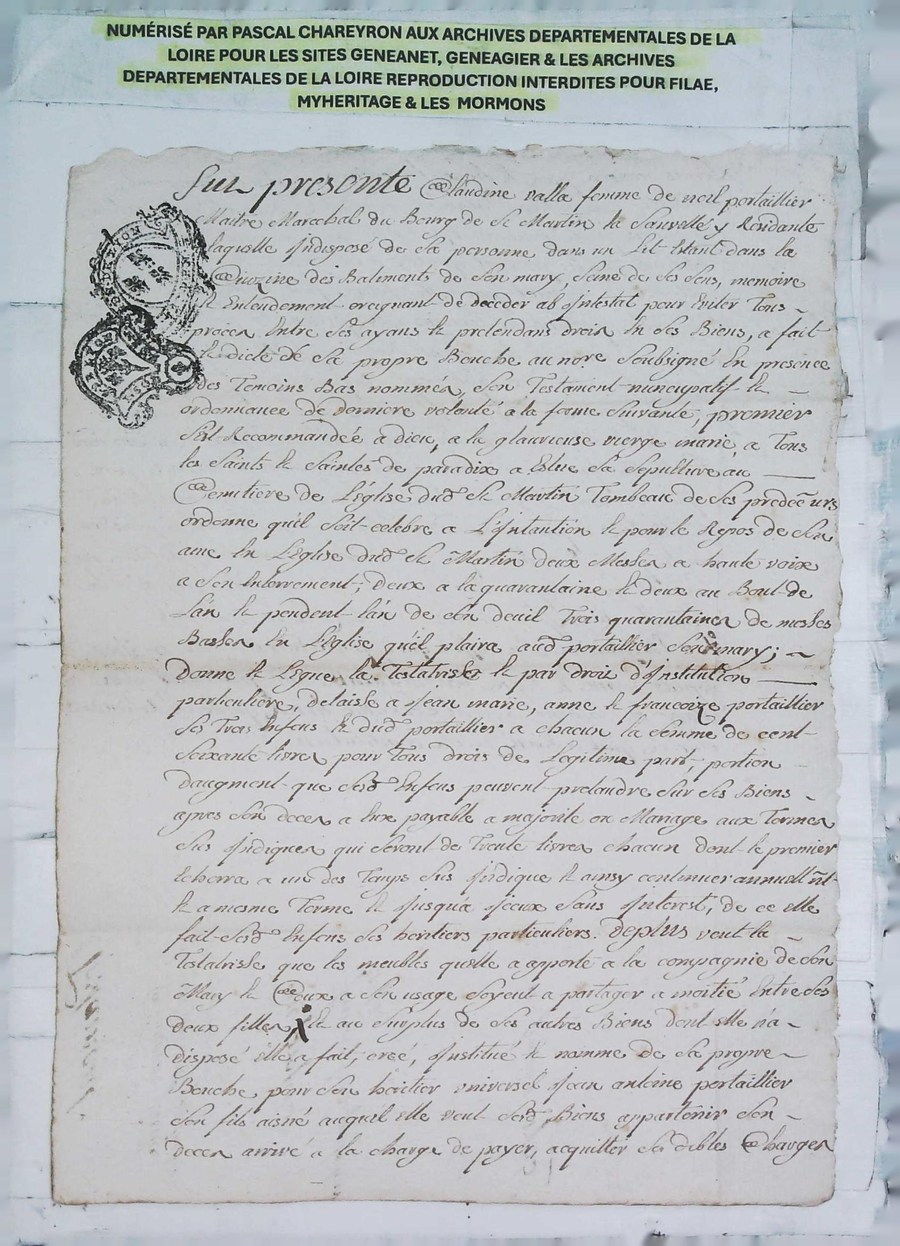 NUMÉRISÉ PAR PASCAL CHAREYRON AUX ARCHIVES DEPARTEMENTALES DE LA
LOIRE POUR LES SITES GENEANET, GENEAGIER & LES ARCHIVES
DEPARTEMENTALES DE LA LOIRE REPRODUCTION INTERDITES POUR FILAE,
MYHERITAGE & LES MORMONS
fut presente Claudine valla femme de noel portaillier
Maitre Marechal du Bourg de St Martin la Sauveté y Residante
laquelle Indisposé de Sa personne dans un Lit Etant dans la
Cuizine des Batiments de Son mary, Saine de Ses Sens, memoire
et Entendement craignant de deceder ab Intestat pour Eviter Tous
procea Entre Ses ayans et pretendant droix En Ses Biens, a fait
et dicté de Sa propre Bouche, au nore Soubsigné En presence
des Temoins Bas nommés, Son Testament nuncupatif et
ordonnance de derniere volonté a la forme Suivante, premier
Sest Recommandée a dieu, a la glaurieuse vierge marie, a Tous
les Saints et Saintes de paradix a Eslue Sa Sepulture au
Cemitiere de L'église dud St Martin Tombeau de Ses predeceurs
ordonne quil Soit celebre a L'Intantion et pour le Repos de Son
ame En L'Eglise dud St Martin deux Messes a haute voix
a Son Enterrement; deux a la quarantaine et deux au Bout de
l'an et pendent lan de Son deuil Trois quarantaines de messes
Basses En L'Eglise qu'il plaira aud portaillier Son mary;
donne et Legue la Testatrisse et par droit d'Institution
particuliere, delaisse a Jean marie, anne et francoize portaillier
Ses Trois Enfens et dud portaillier a chacun la Somme de cent
Soixante livres pour Tous drois de Legitime part, portion
daugment que Sesd Enfens peuvent pretandre Sur Ses Biens
apres Son deces a Eux payable a majorite ou Mariage aux Termes
Sus Indiques qui Seront de Trente livres chacun dont le premier
Echerra a un des Temps Sus Indique et ainsy continuer annuellmt
et a mesme Terme et Jusqua Iceux Sans Interest, de ce elle
fait Sesd Enfens Ses heritiers particuliers. deplus veut la
Testatrisse que les meubles quelle a apporté a la compagnie de Son
Mary et Ceux a Son usage Soyent a partager a moitié Entre Ses
deux filles, et au Surplus de Ses autres Biens dont elle n'a
disposé elle a fait, creé, Institué et nomme de Sa propre
Bouche pour Son heritier universel Jean antoine portaillier
Son fils aisné auquel elle veut Sesd Biens appartenir Son
deces arrivé a la charge de payer, acquitter Ses debtes Charges